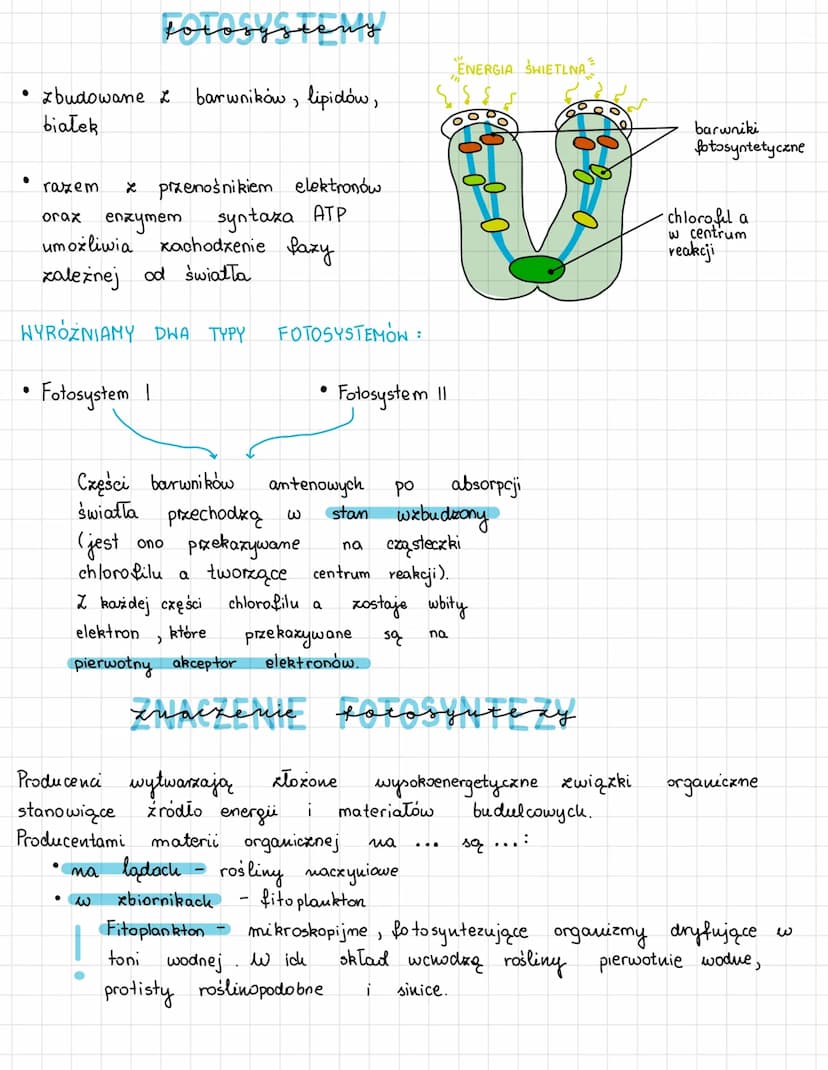 FOTOSYSTEMY
fotosystemy
ENERGIA ŚWIETLNA
• zbudowane z barwników, lipidów,
białek
barwniki
fotosyntetyczne
• razem z przenośnikiem elektronów
oraz enzymem syntaza ATP
umożliwia zachodzenie fazy
zależnej od światła
chlorofil a
w centrum
reakcji
WYRÓŻNIAMY DWA TYPY FOTOSYSTEMÓW:
• Fotosystem I • Fotosystem II
Części barwników antenowych po absorpcji
światła przechodzą w stan wzbudzony
(jest ono przekazywane na cząsteczki
chlorofilu a tworzące centrum reakcji).
Z każdej części chlorofilu a zostaje wbity
elektron, które przekazywane są na
pierwotny akceptor elektronów.
ZNACZENIE FOTOSYNTEZY
znaczenie fotosyntezy
Producenci wytwarzają złożone wysokoenergetyczne związki organiczne
stanowiące źródło energii i materiałów budulcowych.
Producentami materii organicznej na ... są ...:
• na lądach - rośliny naczyniowe
• w zbiornikach - fitoplankton
! Fitoplankton - mikroskopijme, fotosyntezujące organizmy dryfujące w
toni wodnej. W ich skład wchodzą rośliny pierwotnie wodne,
protisty roślinopodobne i sinice.